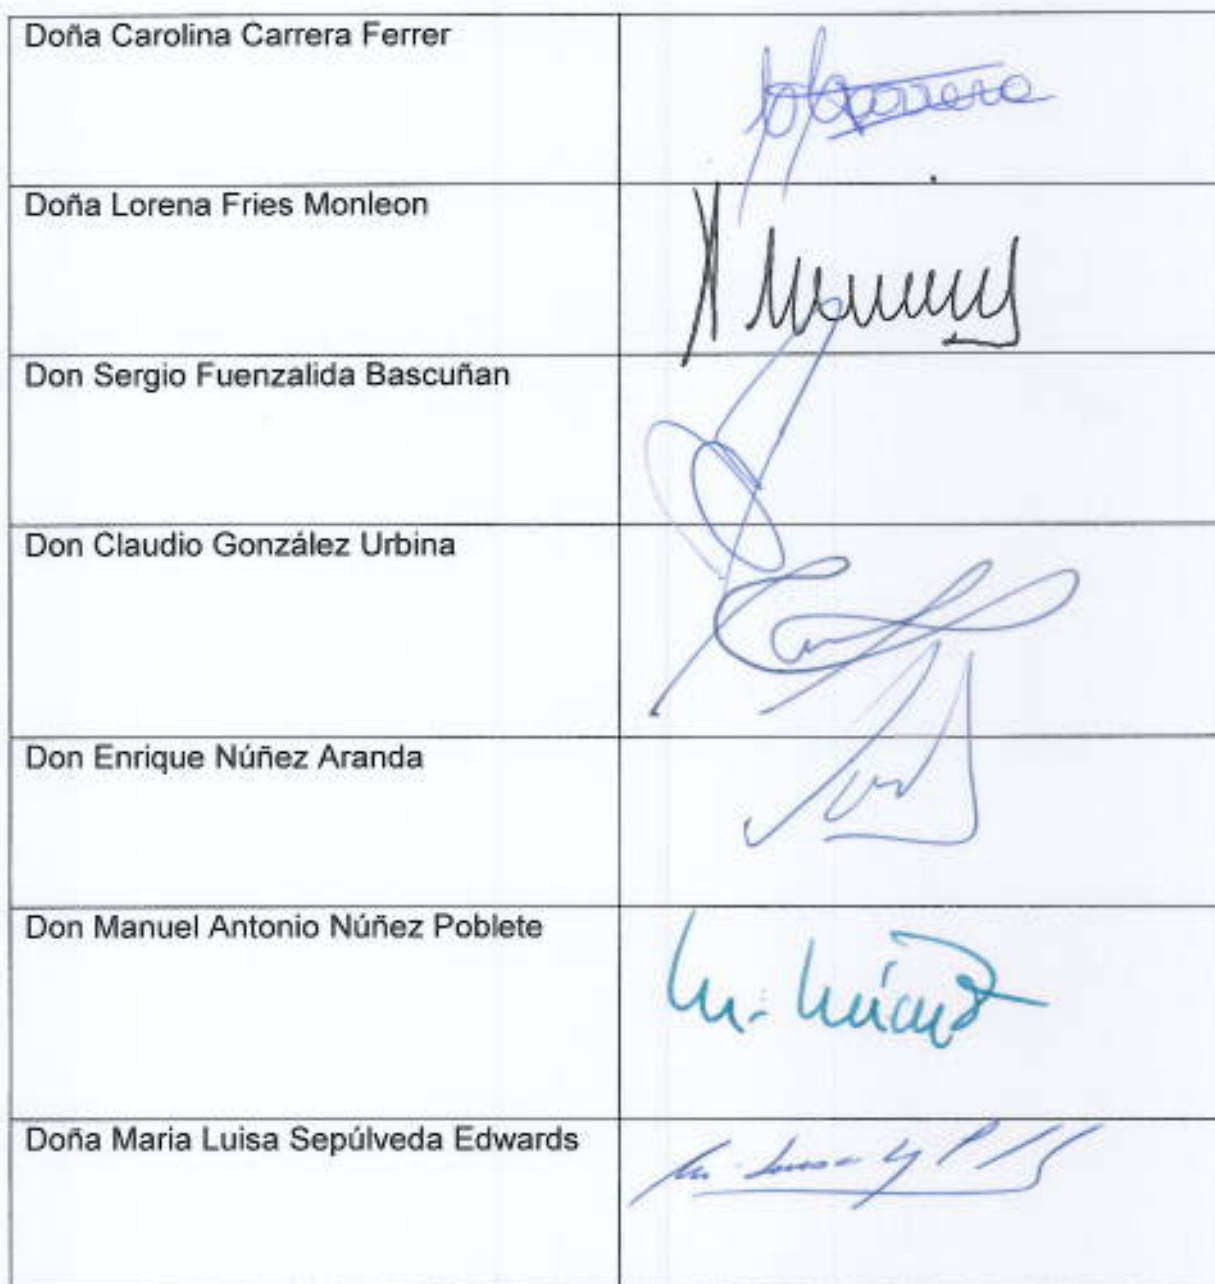 Doña Carolina Carrera Ferrer
Doña Lorena Fries Monleon
Don Sergio Fuenzalida Bascuñan
Don Claudio González Urbina
Don Enrique Núñez Aranda
Don Manuel Antonio Núñez Poblete
Doña Maria Luisa Sepúlveda Edwards